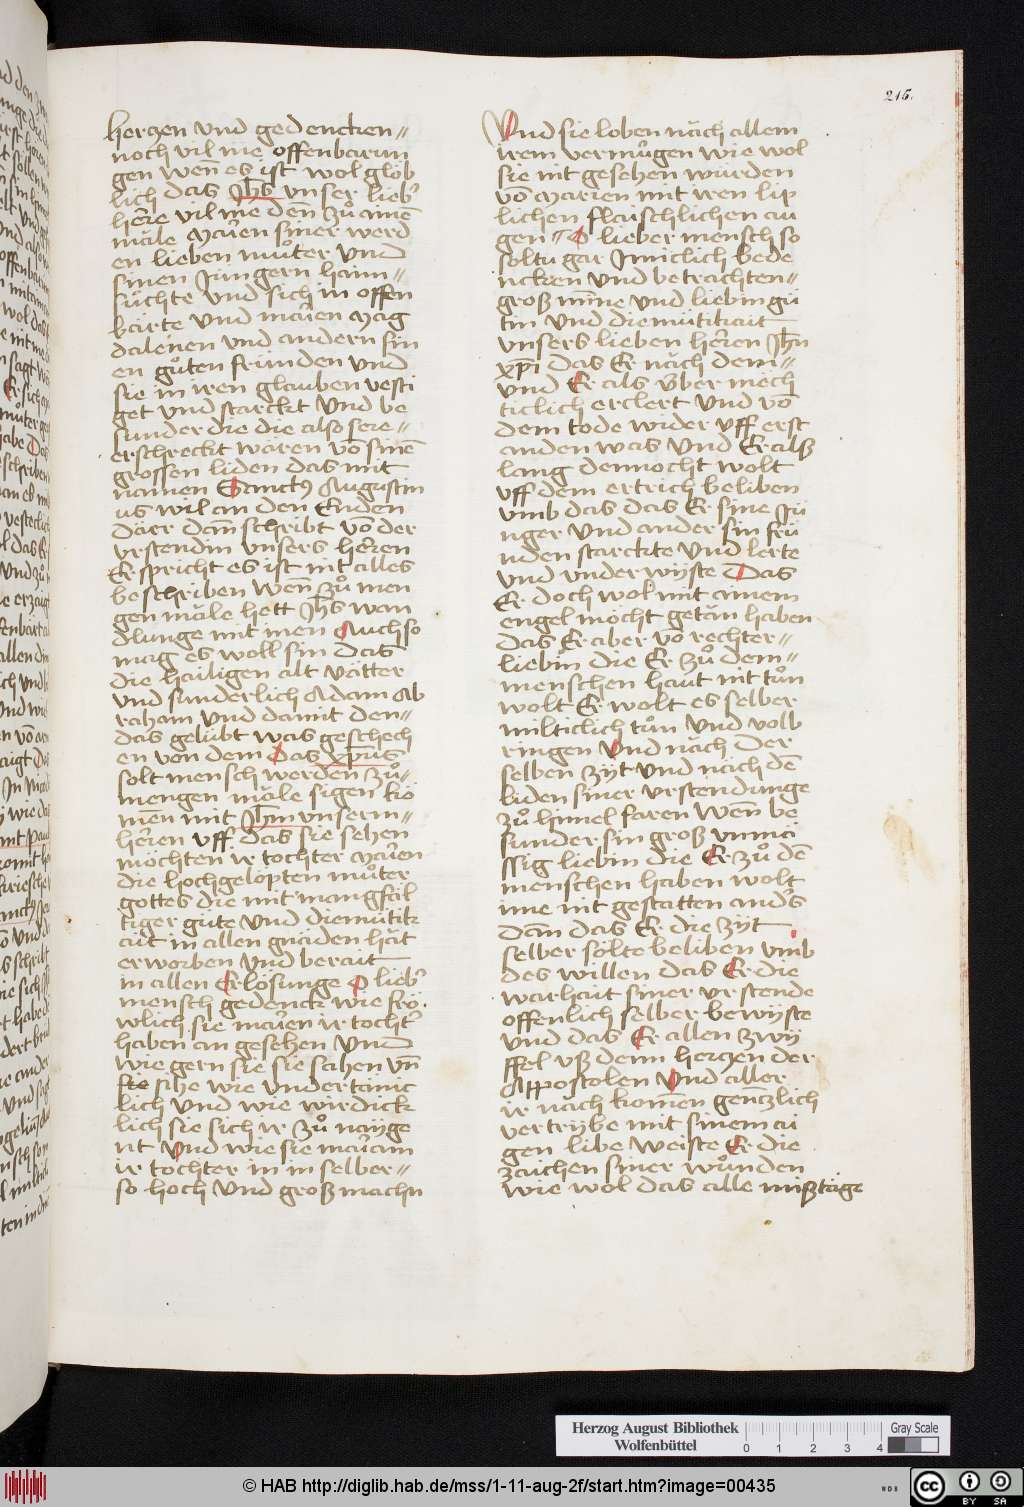 215.
hertzen vnd gedencken
noch vil me offenbarun
gen wen̄ es ist wol glöb
lich das Jhs̄ vnser lieb'
herre vil me den̄ zů ainē
mäle Marien siner werd
en lieben můter Vnd
sinen Jüngern haim
sůchte vnd sich in offen
bärte vnd marien Mag
dalenen vnd andern sin
en gůten fründen vnd
sie in iren glauben vesti
get vnd starckt vnd be
sunder die die also sere
erschreckt wären vō sinē
grossen liden das mit
namen Sanctꝰ Augustin
us wil an den Enden
däer dann schribt vō der
vrstendin vnsers herren
Er spricht es ist nit alles
beschriben wen̄ zů men
gen mäle hett Jhs̄ wan
dlunge mit inen Auch so
mag es woll sin das
die hailigen alt vätter
vnd sunderlich Adam Ab
raham vnd damit den
das gelübt was geschech
en von dem das xp̄us
solt mensch werden zů
mengen mäle sigen kō
men mit Jhm̄ vnserm
herren vff das sie sehen
möchten ir tochter Marien
die hochgelopten můter
gottes die mit mangfäl
tiger güte vnd diemütik
ait in allen gnäden hät
erworben vnd berait
in allen Erlösunge O lieb'
mensch gedenck wie frö
wlich sie marien ir tocht'
haben an gesehen vnd
wie gern sie sie sahen vn̄
sihe wie vndertänic
lich vnd wie wirdick
lich sie sich ir zů nayge
nt vnd wie sie mariam
ir tochter in in selber
so hoch vnd groß machn
Vnd sie loben näch allem
irem vermůgen wie wol
sie nit gesehen wurden
vō Marien mit iren lip
lichen flaischlichen au
gen O lieber mensch so
soltu gar Jnniclich bede
ncken vnd betrachten
groß mīne vnd liebin gü
tin vnd die mütikait
vnsers lieben herren Jhn̄
xp̄i das Er näch dem
vnd Er als über mech
ticlich erclert vnd vō
dem tode wider vff erst
anden was vnd Er als
lang dennocht wolt
vff dem ertrich beliben
vmb das das Er sine Jü
nger vnd ander sin frü
nden starckte vnd lerte
vnd vnderwyste Das
Er doch wol mit ainem
engel möcht getän haben
das Er aber vō rechter
liebin die Er zů dem
menschen haut nit tůn
wolt Er wolt es selber
milticlich tůn vnd volb
ringen vnd näch der
selben zyt vnd näch dē
liden siner vrstendunge
zů himel faren wen̄ be
sunder sin groß vnmä
ssig liebin die Er zů dē
menschen haben wolt
ime nit gestatten and's
dān das Er die zyt
selber sölte beliben vmb
des willen das Er die
warhait siner vrstende
offenlich selber bewyste
vnd das Er allen zwy
ffel vß denn hertzen der
Appostolen vnd aller
ir nach komen gentzlich
vertrybe mit sinem ai
gen libe weiste Er die
zaichen siner wůnden
wie wol das alle mißtäge
Herzog August Bibliothek
Wolfenbüttel
0 1 2 3 4
Gray Scale
© HAB http://diglib.hab.de/mss/1-11-aug-2f/start.htm?image=00435
cc BY SA